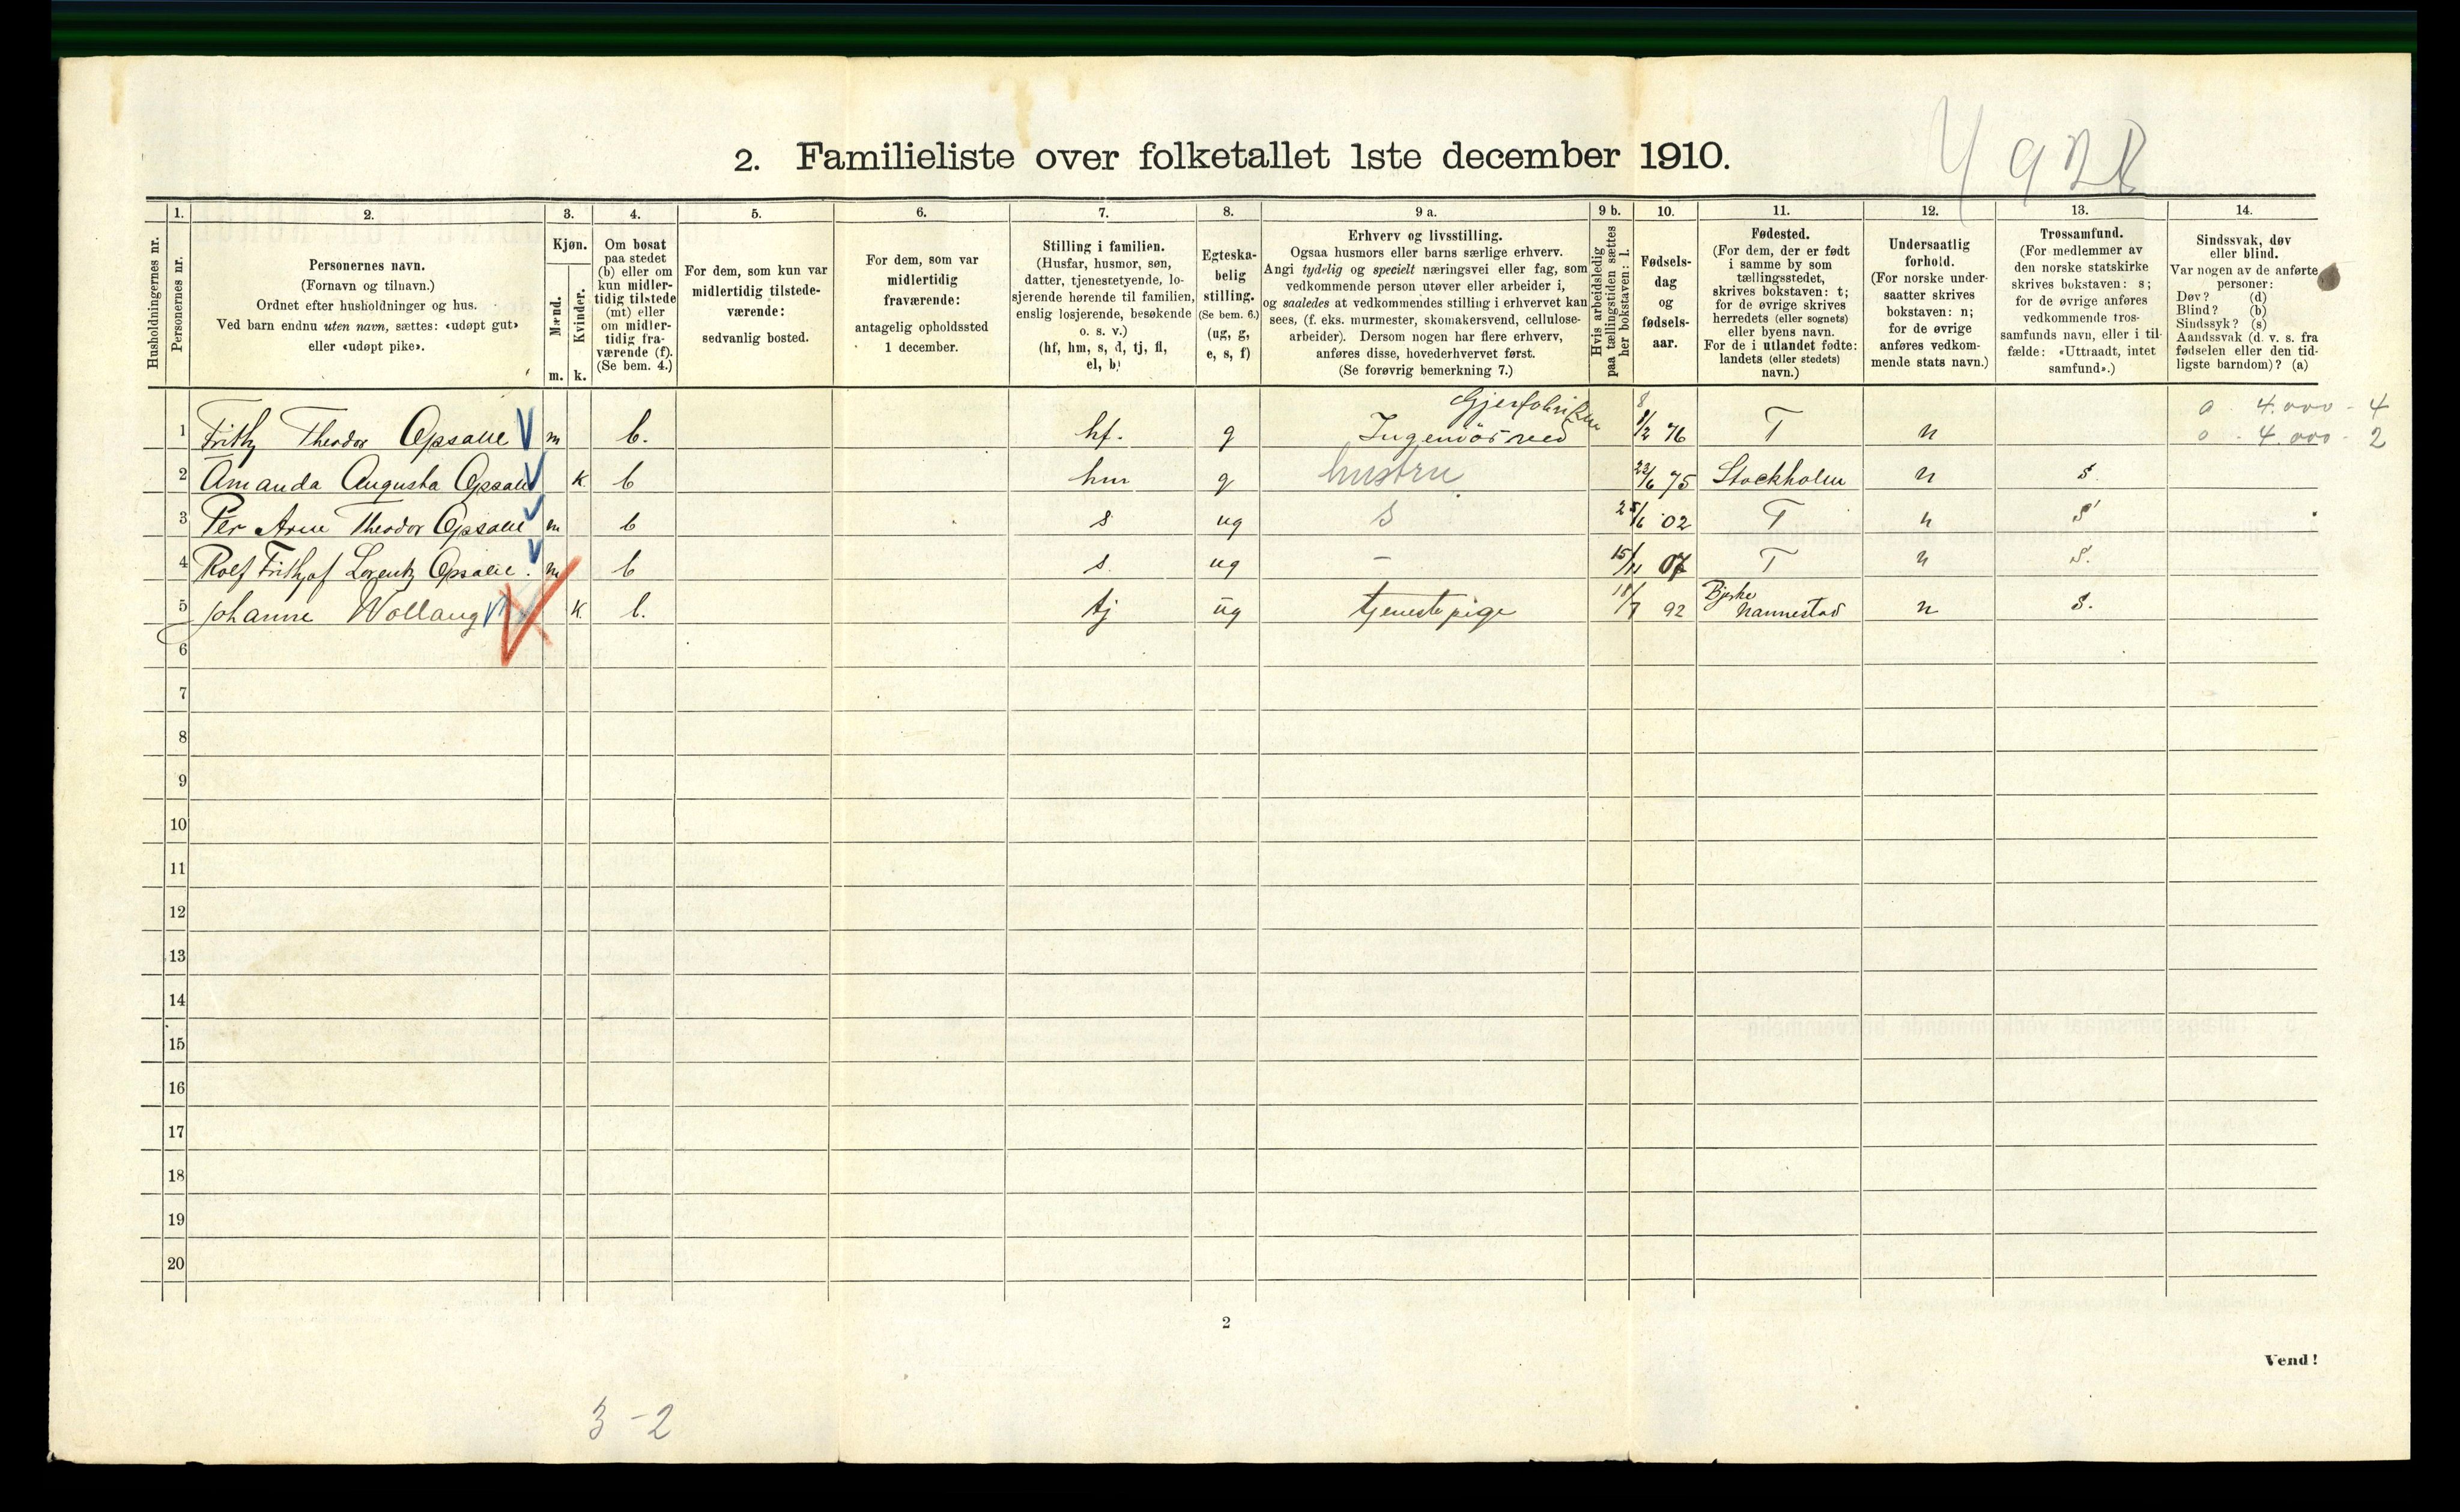 2. Familieliste over folketallet 1ste december 1910.
1. 2. 3. 4. 5. 6. 7. 8. 9 a. 9 b. 10. 11. 12. 13. 14.
Husholdningernes nr.
Personernes nr.
Personernes navn.
(Fornavn og tilnavn.)
Ordnet efter husholdninger og hus.
Ved barn endnu uten navn, sættes: «udøpt gut»
eller «udøpt pike».
Kjøn.
Mænd.
Kvinder.
m. k.
Om bosat
paa stedet
(b) eller om
kun midler-
tidig tilstede
(mt) eller
om midler-
tidig fra-
værende (f).
(Se bem. 4.)
For dem, som kun var
midlertidig tilstede-
værende:
sedvanlig bosted.
For dem, som var
midlertidig
fraværende:
antagelig opholdssted
1 december.
Stilling i familien.
(Husfar, husmor, søn,
datter, tjenestetyende, lo-
sjerende hørende til familien,
enslig losjerende, besøkende
o. s. v.)
(hf, hm, s, d, tj, fl,
el, b)
Egteska-
belig
stilling.
(Se bem. 6.)
(ug, g,
e, s, f)
Erhverv og livsstilling.
Ogsaa husmors eller barns særlige erhverv.
Angi tydelig og specielt næringsvei eller fag, som
vedkommende person utøver eller arbeider i,
og saaledes at vedkommendes stilling i erhvervet kan
sees, (f. eks. murmester, skomakersvend, cellulose-
arbeider). Dersom nogen har flere erhverv,
anføres disse, hovederhvervet først.
(Se forøvrig bemerkning 7.)
Hvis arbeidsledig
paa tællingstiden sættes
her bokstaven: l.
Fødsels-
dag
og
fødsels-
aar.
Fødested.
(For dem, der er født
i samme by som
tællingsstedet,
skrives bokstaven: t;
for de øvrige skrives
herredets (eller sognets)
eller byens navn.
For de i utlandet fødte:
landets (eller stedets)
navn.)
Undersaatlig
forhold.
(For norske under-
saatter skrives
bokstaven: n;
for de øvrige
anføres vedkom-
mende stats navn.)
Trossamfund.
(For medlemmer av
den norske statskirke
skrives bokstaven: s;
for de øvrige anføres
vedkommende tros-
samfunds navn, eller i til-
fælde: «Uttraadt, intet
samfund».)
Sindssvak, døv
eller blind.
Var nogen av de anførte
personer:
Døv? (d)
Blind? (b)
Sindssyk? (s)
Aandssvak (d. v. s. fra
fødselen eller den tid-
ligste barndom)? (a)
Gjerfabriken 8 0 4.000 - 4
1 Frithj Theodor Opsalie m b. hf. g Ingeniør ved 8/2 76 T n 0 4.000 - 2
2 Amanda Augusta Opsalie k b hm g hustru 23/6 75 Stockholm n s.
3 Per Arne Theodor Opsalie m b s ug s 25/6 02 T n s
4 Rolf Frithjof Lorentz Opsalie. m b s. ug - 15/11 07 T n s.
5 Johanne Wollaug k. b. tj ug tjenestepige 18/7 92 Bjerke Nannestad n s.
6
7
8
9
10
11
12
13
14
15
16
17
18
19
20
2
Vend!
3 - 2